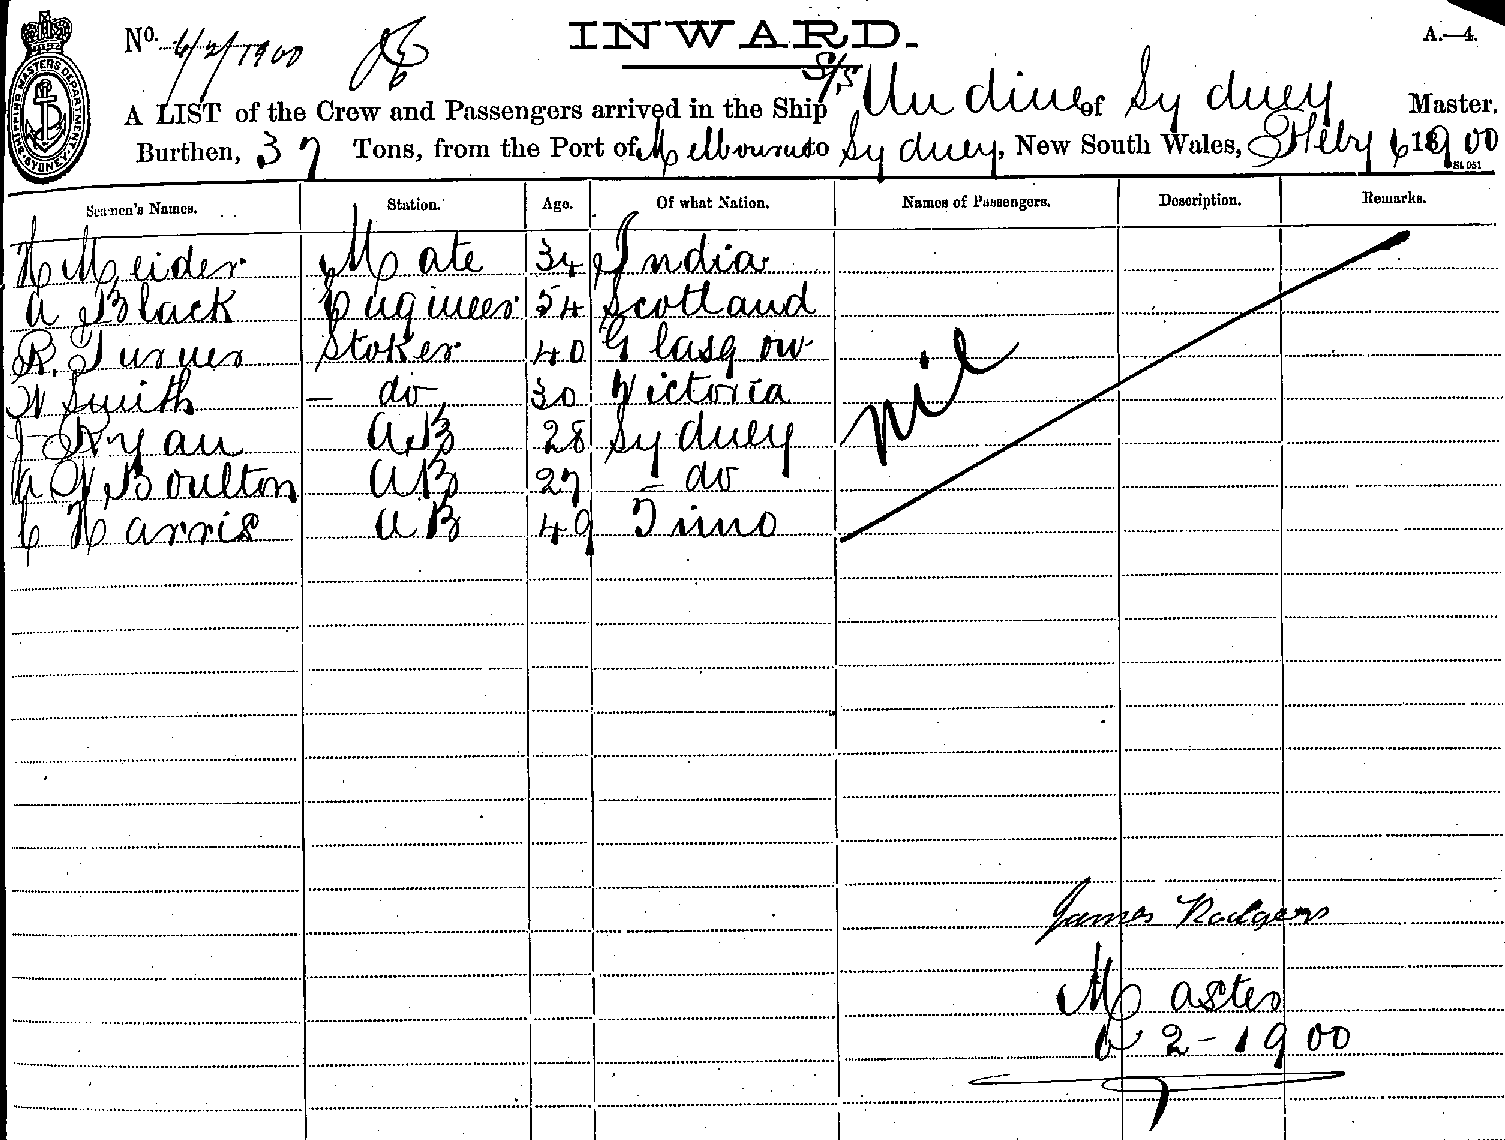 No. 6/2/1900
INWARD.
A.—4.
A LIST of the Crew and Passengers arrived in the Ship S/S Undine of Sydney Master,
Burthen, 37 Tons, from the Port of Melbourne to Sydney, New South Wales, 6 1900
Seamen's Names. Station. Age. Of what Nation. Names of Passengers. Description. Remarks.
H Meider Mate 34 India
A Black Engineer 54 Scotland
R. Turner Stoker 40 Glasgow
W Smith – do 30 Victoria
J Ryan AB 28 Sydney
A W Boulton AB 27 – do
C Harris AB 49
nil
James Rodgers
Master
6 2-1900